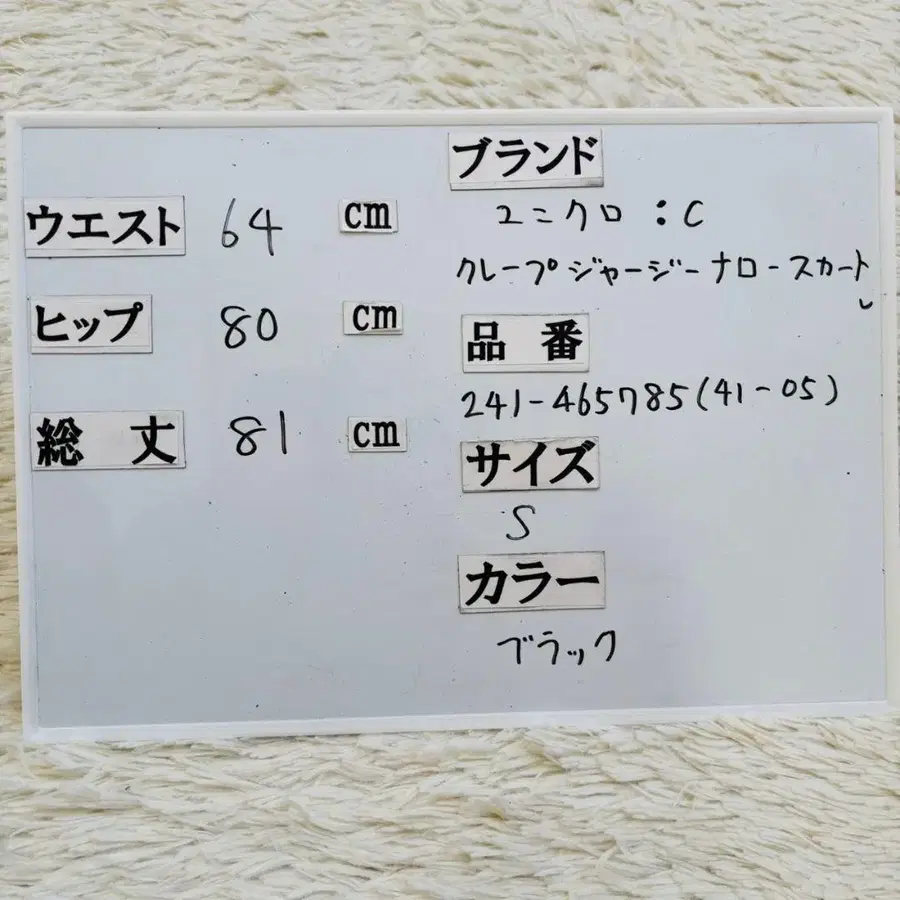 ウエスト 64 cm
ヒップ 80 cm
総丈 81 cm
ブランド
ユニクロ:C
クレープジャージーナロースカート
品番
241-465785(41-05)
サイズ
S
カラー
ブラック